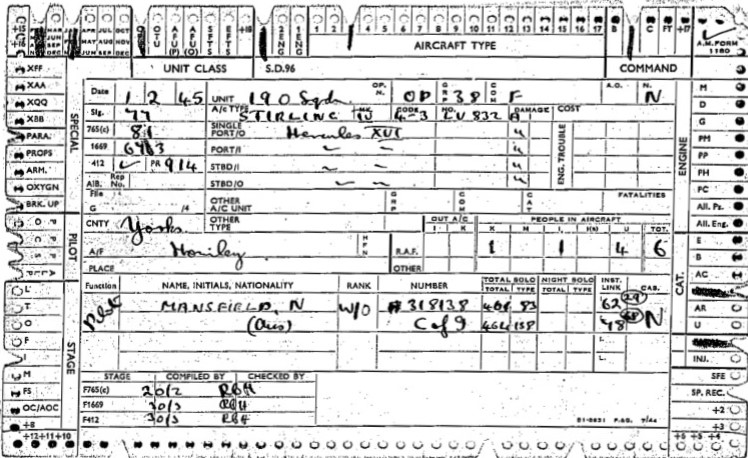 +15 MAR APR JUL OCT OTU AFU (P) AFU (O) SFTS EFTS +18 2 ENG 1 ENG 1 2 3 4 5 6 7 8 9 10 11 12 13 14 15 16 17 B C FT +17
+16 JUN MAY AUG NOV AIRCRAFT TYPE A.M. FORM 1180
SEP JUN SEP DEC
XFF UNIT CLASS S.D.96 COMMAND
XAA
XQQ
XBB
PARA.
PROPS
ARM.
OXYGN
BRK. UP
SPECIAL
Date 1 2 45 UNIT 190 Sqdn OP.N. OP GRP 38 COM F A.O. N. N
Sig. 77 A/C TYPE STIRLING MK. IV CODE 4-3 NO. LV 832 DAMAGE A COST
765(c) 81 SINGLE PORT/O Hercules XVI u
1669 PORT/I u ENG. TROUBLE
412 PR 914 STBD/I u
A.I.B. Rep No. STBD/O u
File G /4 OTHER A/C UNIT GRP COM CAT FATALITIES
CNTY Yorks. OTHER TYPE OUT A/C I K PEOPLE IN AIRCRAFT K M I. I(s) U TOT.
A/F HFN R.A.F. 1 1 4 6
PLACE OTHER
PILOT
Function NAME, INITIALS, NATIONALITY RANK NUMBER TOTAL SOLO TOTAL TYPE NIGHT SOLO TOTAL TYPE INST. LINK CAB.
Pilot MANSFIELD, N W/O 318138 83 62 29 N
(Aus) C of 9 464 158 48
STAGE COMPILED BY CHECKED BY
F765(c) 20/2 RBH
F1669 30/3 RBH
F412 30/3 RBH
51-0651 7/44
STAGE
L
T
O
F
I
M
FS
OC/AOC
+8
+12 +11 +10
ENGINE
M
D
G
PM
PP
PH
FC
All. Ps.
All. Eng.
CAT.
E
B
AC
AR
U
INJ.
SFE
SP. REC.
+2
+3
+6 +5 +4